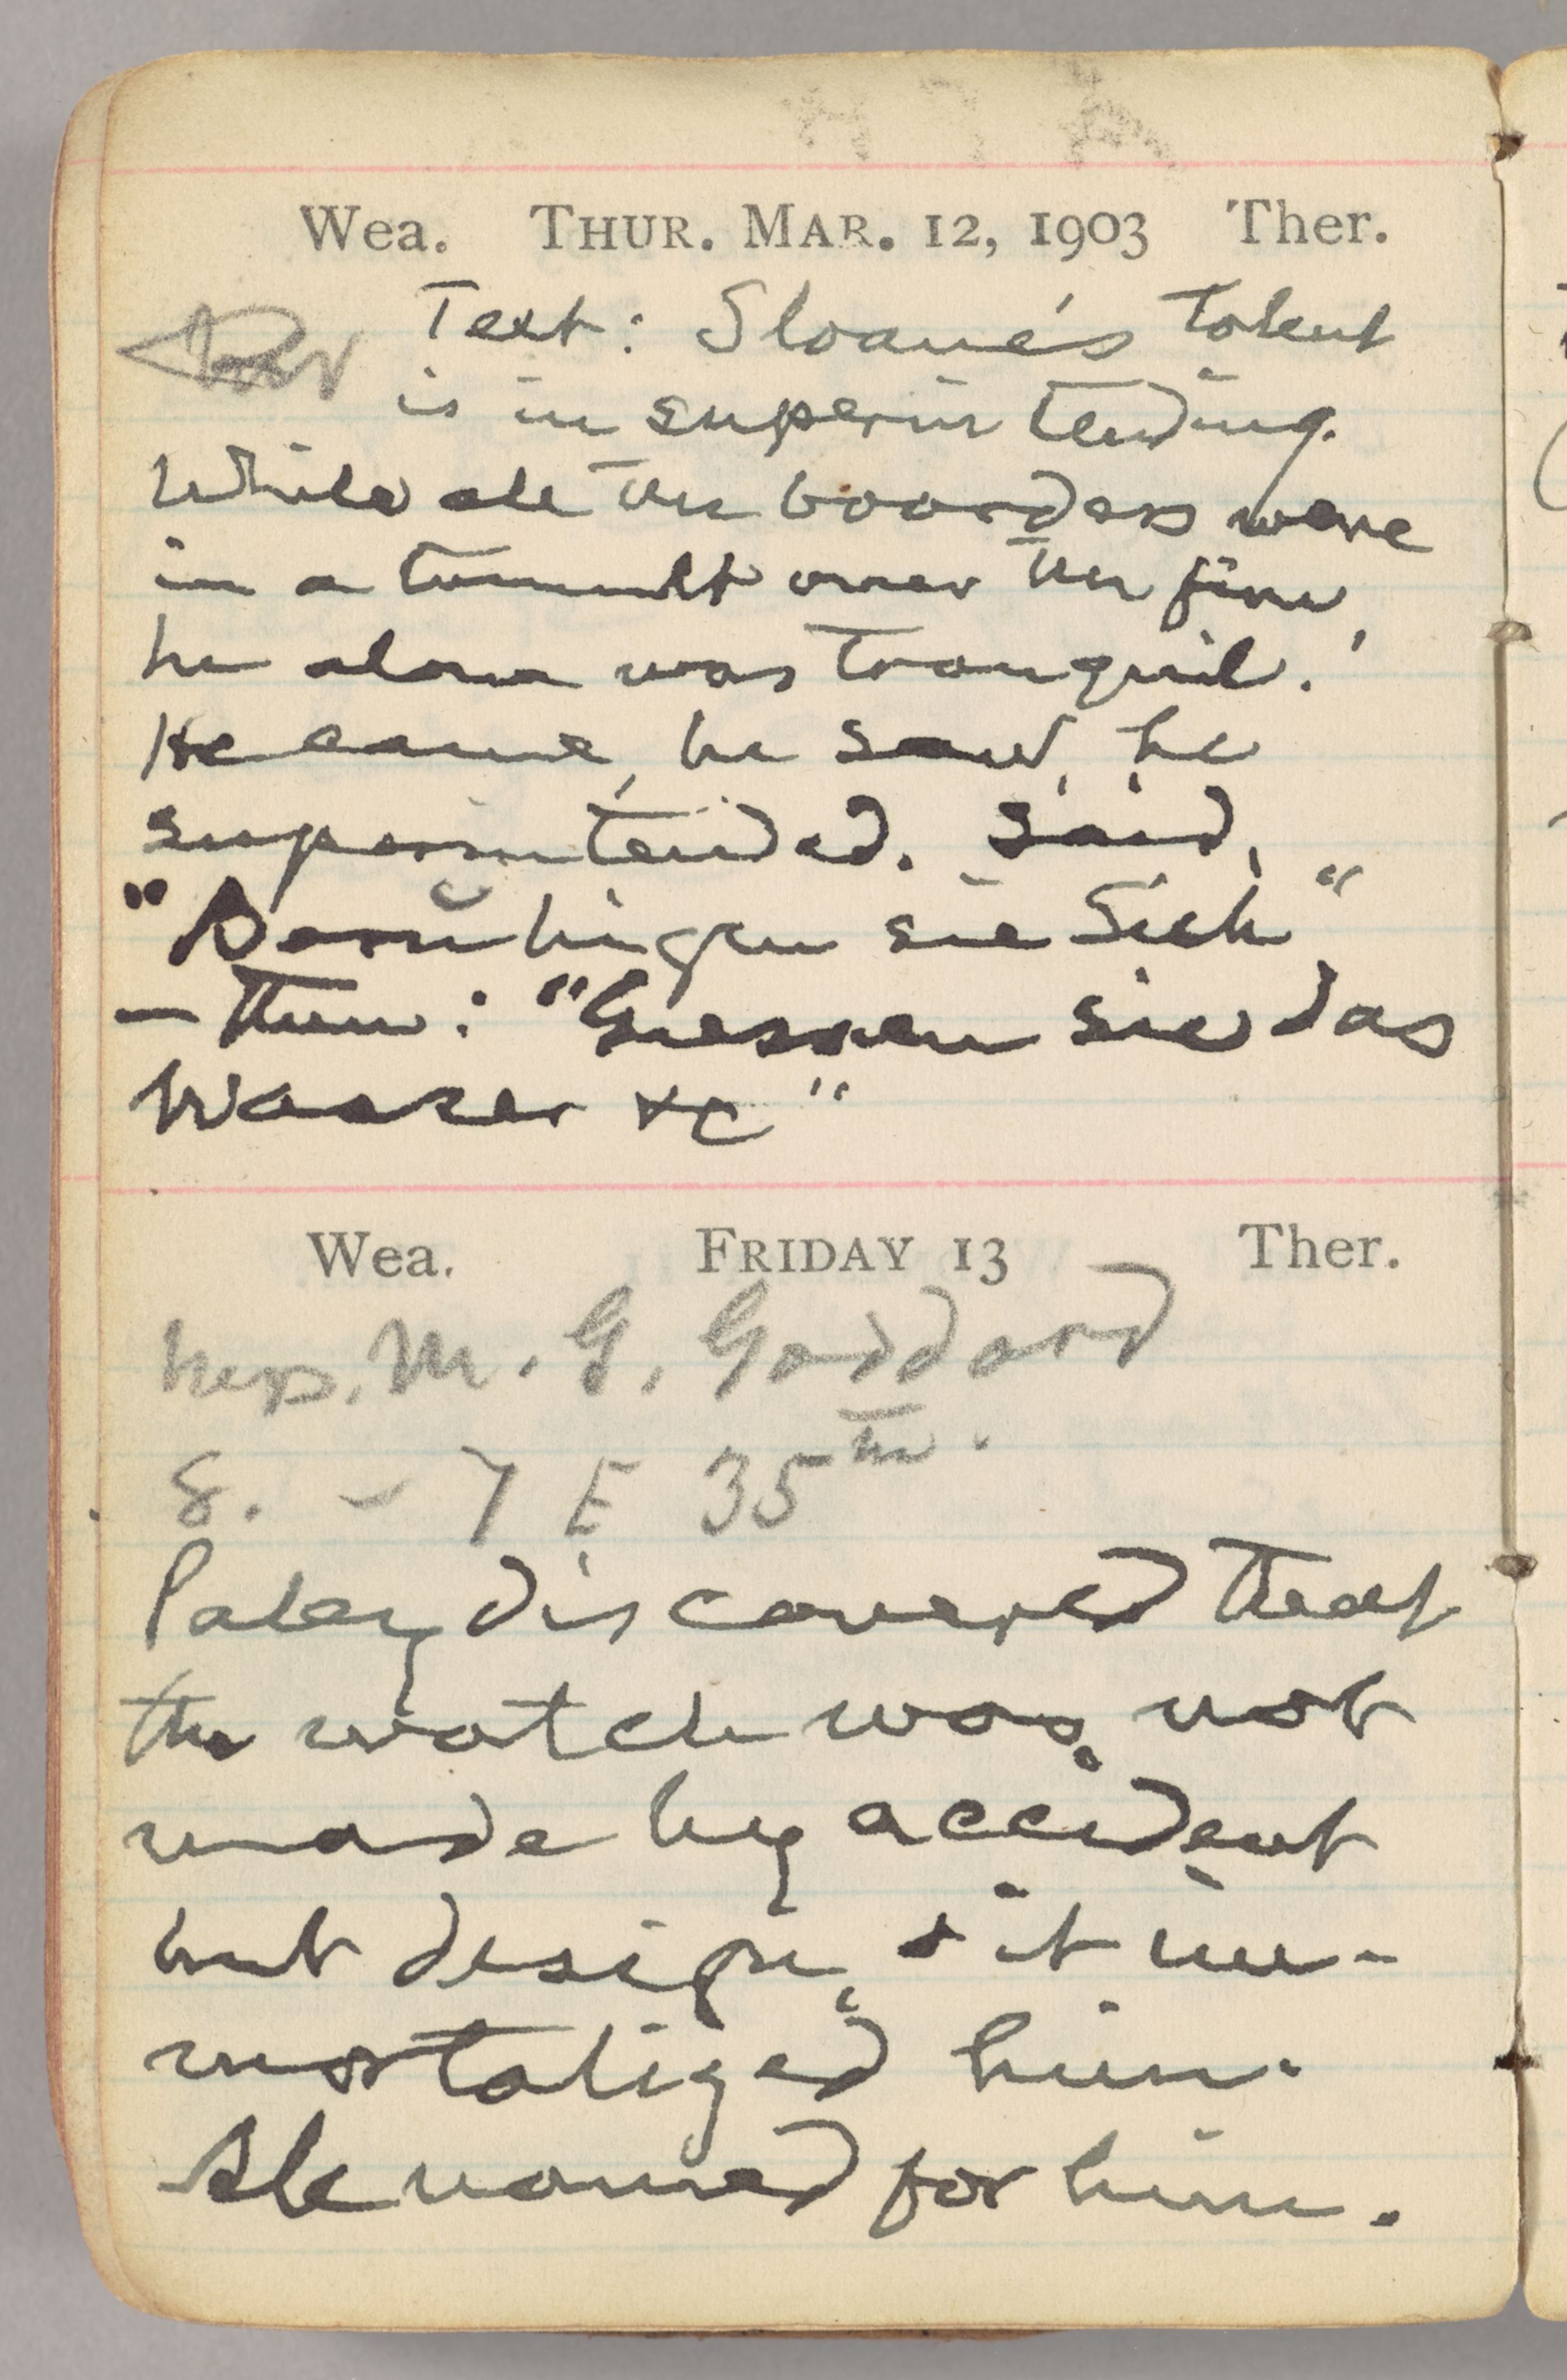 Wea. THUR. MAR. 12, 1903 Ther.
Text: Sloane's talent
is in superintending.
While all the boarders were
in a tumult over the fire,
he alone was tranquil.
He came, he saw, he
superintended. Said,
"Beruhigen sie Sich"
— then: "Giessen sie das
Wasser &c"
Wea. FRIDAY 13 Ther.
Mrs. M. G. Goddard
8. - 7 E 35th.
Paley discovered that
the watch was not
made by accident
but design, & it im-
mortalized him.
Ale named for him.